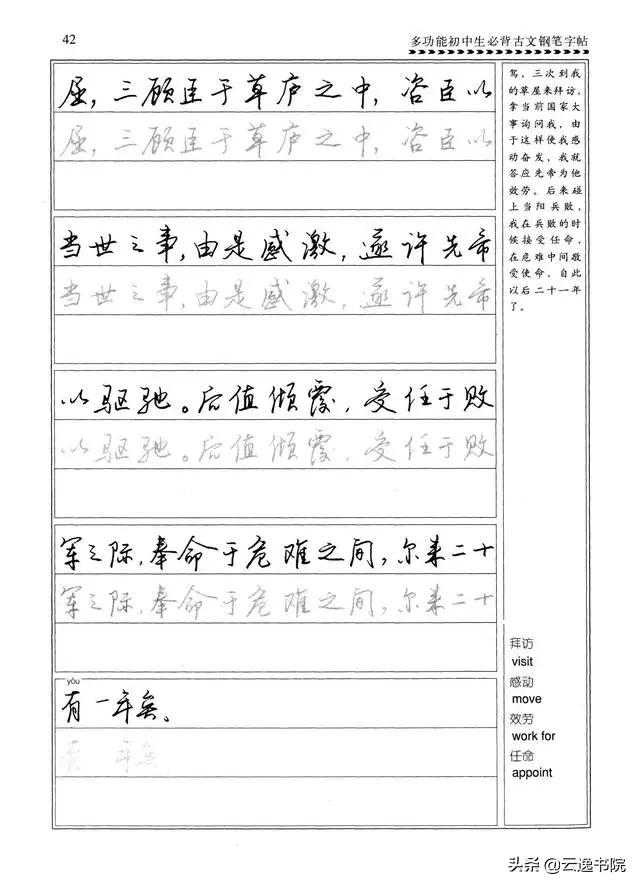 42
多功能初中生必背古文钢笔字帖
屈，三顾臣于草庐之中，咨臣以
屈，三顾臣于草庐之中，咨臣以
当世之事，由是感激，遂许先帝
当世之事，由是感激，遂许先帝
以驱驰。后值倾覆，受任于败
以驱驰。后值倾覆，受任于败
军之际，奉命于危难之间，尔来二十
军之际，奉命于危难之间，尔来二十
yòu
有一年矣。
有 年矣
驾，三次到我
的草屋来拜访，
拿当前国家大
事询问我，由
于这样使我感
动奋发，我就
答应先帝为他
效劳。后来碰
上当阳兵败，
我在兵败的时
候接受任命，
在危难中间敬
受使命，自此
以后二十一年
了。
拜访
visit
感动
move
效劳
work for
任命
appoint
头条 @云逸书院